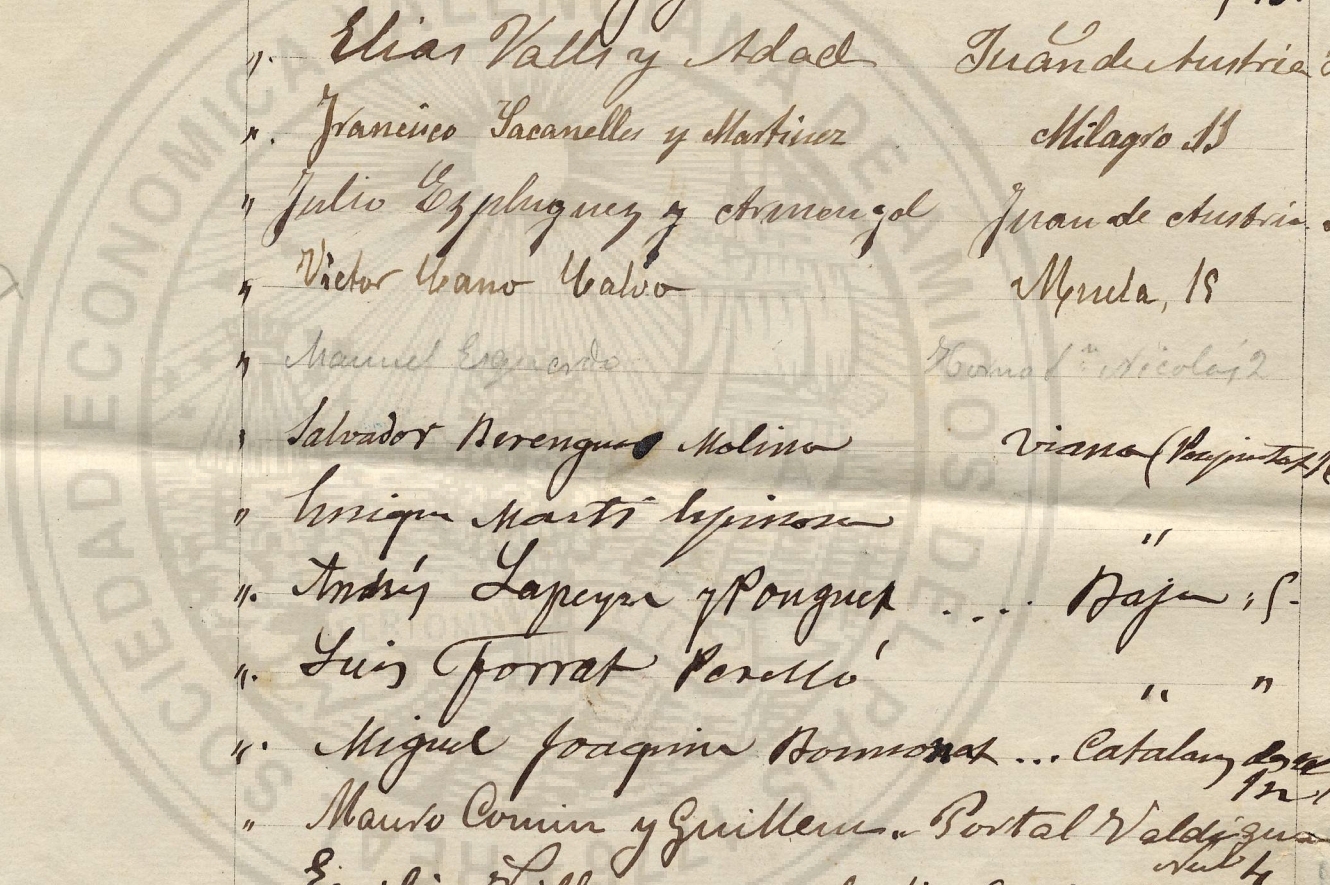 ". Elias Valls y Adad Juan de Austria
". Francisco Sacanelles y Martinez Milagro 11
" Julio Ezpluguez y Armengol Juan de Austria
" Victor Cano Calvo Muela, 15
" Manuel Esquerdo Horno Sn Nicolás 2
" Salvador Berenguer Molina Viana
" Enrique Martí Espinosa "
". Andrés Lapeyra y Ponguet .... Baja, 5-
". Luis Torrat Perelló " "
". Miguel Joaquin Bonmonat ... Catalans
" Mauro Comin y Guillem.. Portal Valdigna
Num 4
SOCIEDAD ECONOMICA VALENCIANA DE AMIGOS DEL PAIS